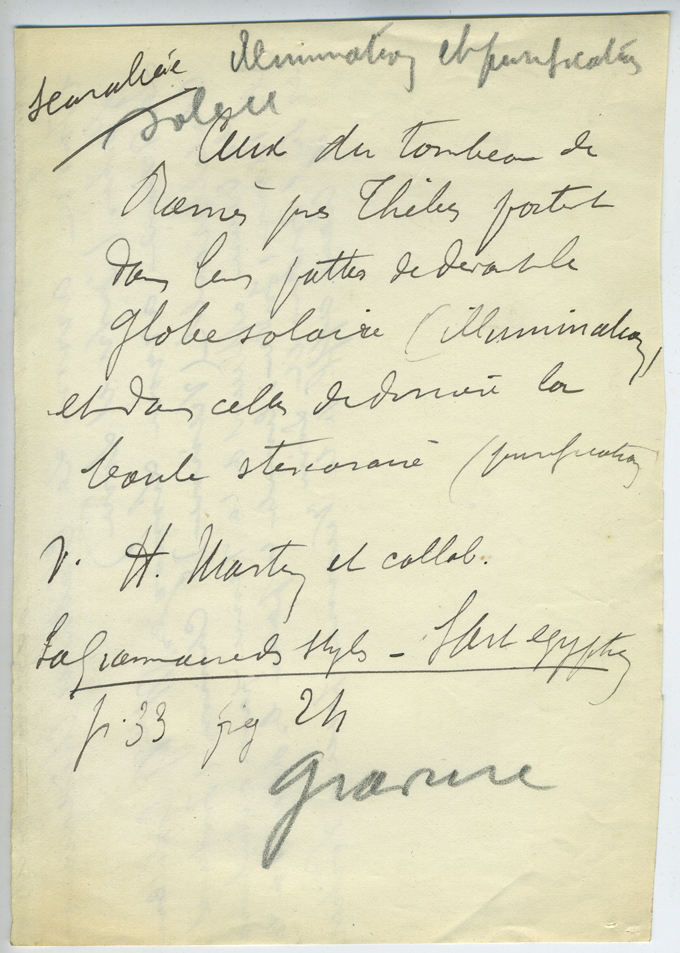 scarabée Illumination et purification
Soleil
Ceux du tombeau de
Ramsès près Thèbes portent
dans leurs pattes de devant le
globe solaire (illumination)
et dans celles de derrière la
boule stercoraire (purification)
V. H. Martin et collab.
La Grammaire des styles - L'art egyptien
p. 33 fig 24
Gravure